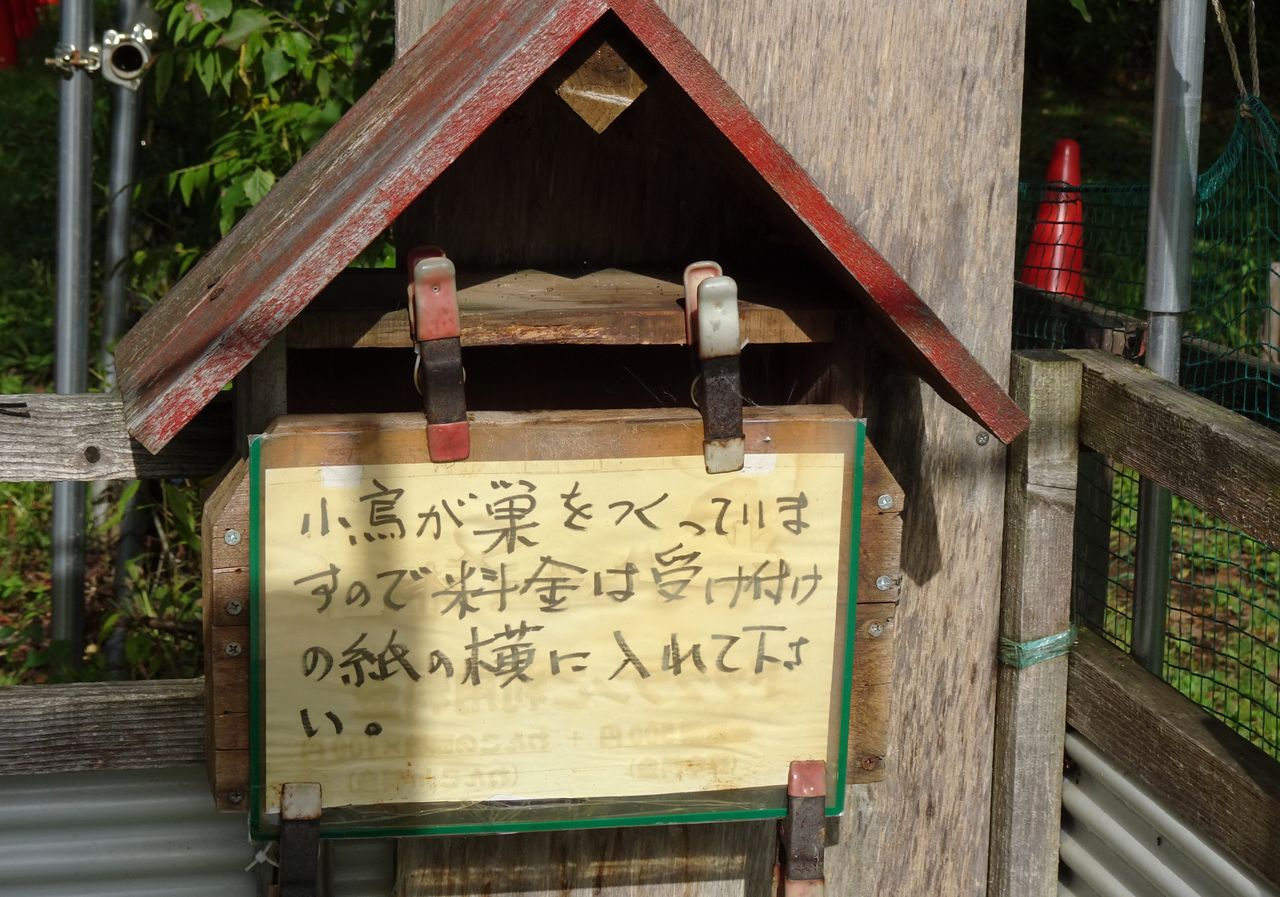 小鳥が巣をつくっていま
すので料金は受け付け
の紙の横に入れて下さ
い。